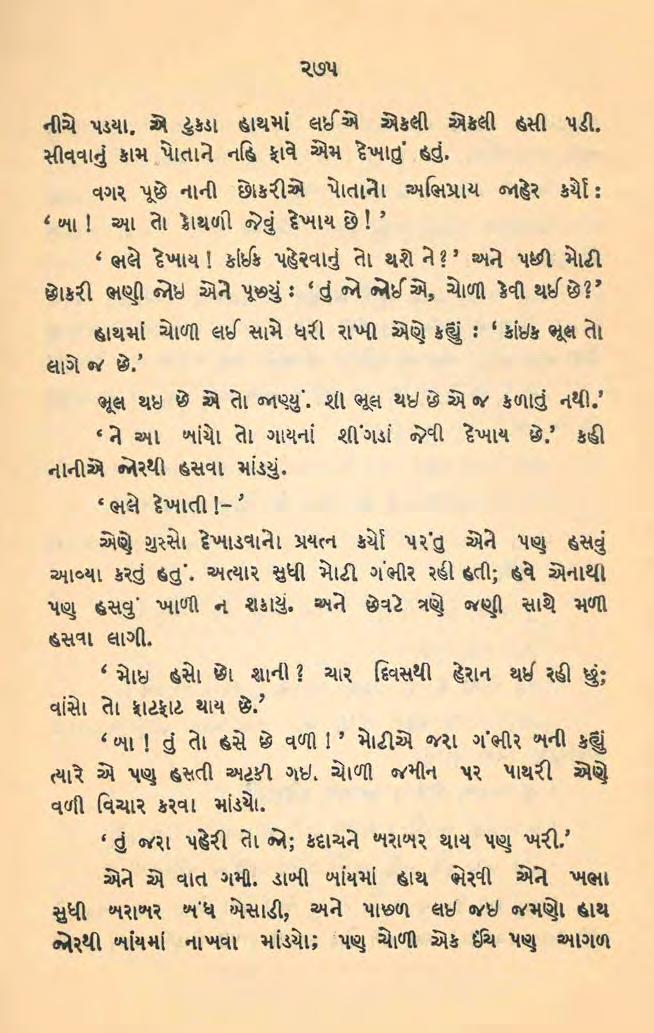 ૨૭૫
નીચે પડયા. એ ટુકડા હાથમાં લઈએ એકલી એકલી હસી પડી.
સીવવાનું કામ પોતાને નહિ ફાવે એમ દેખાતું હતું.
વગર પૂછે નાની છોકરીએ પોતાનો અભિપ્રાય જાહેર કર્યો :
‘ બા ! આ તો કોથળી જેવું દેખાય છે ! ’
‘ ભલે દેખાય ! કાંઈક પહેરવાનું તો થશે ને ? ’ અને પછી મોટી
છોકરી ભણી જોઇ એને પૂછ્યું : ‘ તું જો જોઈએ, ચોળી કેવી થઈ છે ?’
હાથમાં ચોળી લઈ સામે ધરી રાખી એણે કહ્યું : ‘ કાંઇક ભૂલ તો
લાગે જ છે.’
ભૂલ થઇ છે એ તો જાણ્યું. શી ભૂલ થઇ છે એ જ કળાતું નથી.’
‘ ને આ બાંયો તો ગાયનાં શીંગડાં જેવી દેખાય છે.’ કહી
નાનીએ જોરથી હસવા માંડયું.
‘ ભલે દેખાતી !– ’
એણે ગુસ્સો દેખાડવાનો પ્રયત્ન કર્યો પરંતુ એને પણ હસવું
આવ્યા કરતું હતું. અત્યાર સુધી મોટી ગંભીર રહી હતી; હવે એનાથી
પણ હસવું ખાળી ન શકાયું. અને છેવટે ત્રણે જણી સાથે મળી
હસવા લાગી.
‘ મોઇ હસો છો શાની ? ચાર દિવસથી હેરાન થઈ રહી છું;
વાંસો તો ફાટફાટ થાય છે.’
‘ બા ! તું તો હસે છે વળી ! ’ મોટીએ જરા ગંભીર બની કહ્યું
ત્યારે એ પણ હસતી અટકી ગઇ. ચોળી જમીન પર પાથરી એણે
વળી વિચાર કરવા માંડયો.
‘ તું જરા પહેરી તો જો; કદાચને બરાબર થાય પણ ખરી.’
એને એ વાત ગમી. ડાબી બાંયમાં હાથ ભેરવી એને ખભા
સુધી બરાબર બંધ બેસાડી, અને પાછળ લઇ જઇ જમણો હાથ
જોરથી બાંયમાં નાખવા માંડયો; પણ ચોળી એક ઈંચ પણ આગળ